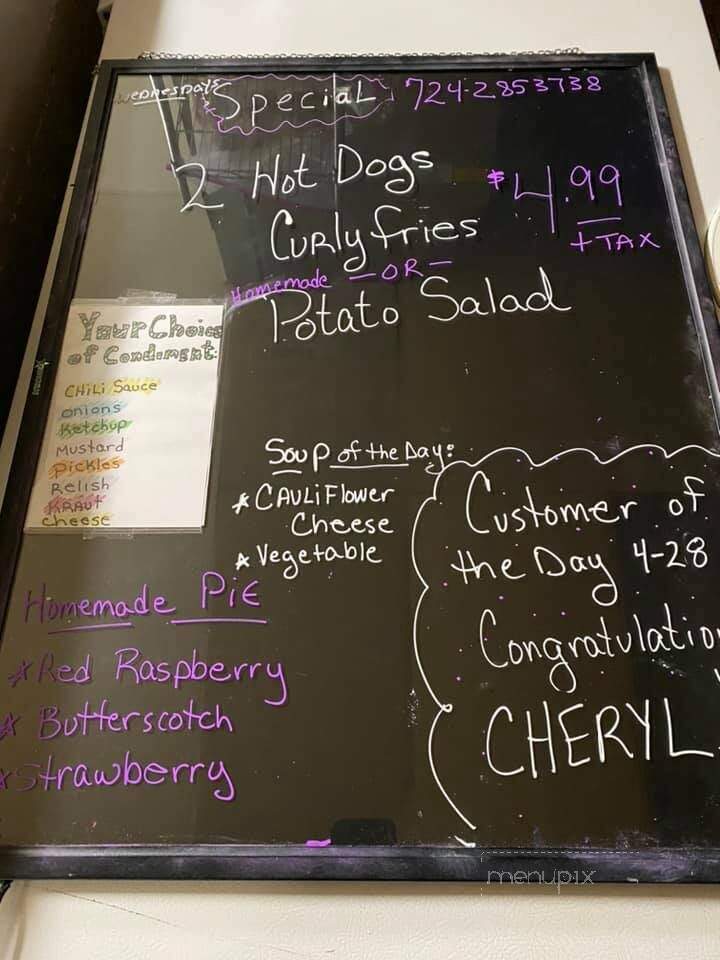 Wednesdays Special 724-2853738
2 Hot Dogs
$4.99
Curly fries
+ TAX
Homemade - OR -
Potato Salad
Your Choice
of Condiment:
CHiLi Sauce
onions
Ketchup
Mustard
Pickles
Relish
KRAUT
Cheese
Soup of the Day:
* CAULiFlower
Cheese
* Vegetable
Customer of
the Day 4-28
Congratulatio
CHERYL
Homemade PiE
* Red Raspberry
* Butterscotch
* Strawberry
menupix